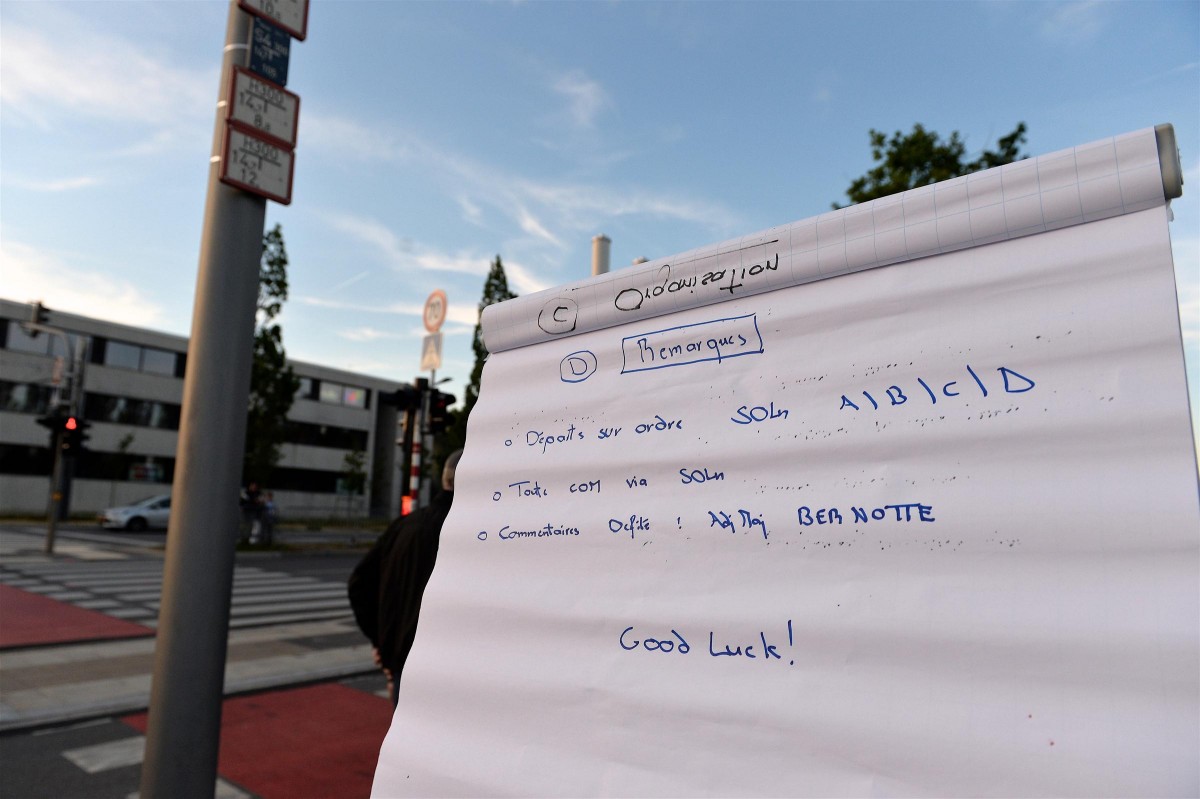 H300
14,1
8,
H300
14,1
12,
70
C Organization
D Remarques
o Départs sur ordre SOLn A / B / C / D
o Toute com via SOLn
o Commentaires : Adj Maj BERNOTTE
Good Luck!